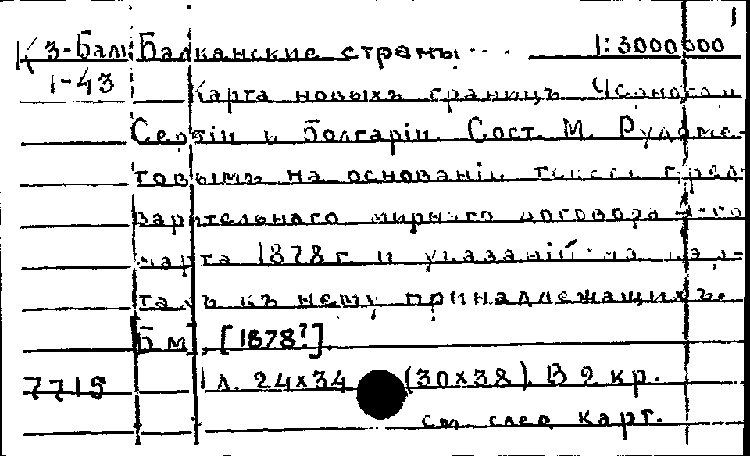 1
К 3-Балк Балканские страны... 1:3000000
1-43 Карта новыхъ границъ
Сербіи и Болгаріи. Сост. М. Рудоме-
товымъ на основаніи текста пред-
варительнаго мирнаго договора
марта 1878 г. и указаній на кар-
тахъ къ нему принадлежащихъ.
[Б.м], [1878?].
7715 1 л. 24х34 (30х38). В 2 кр.
см. след карт.